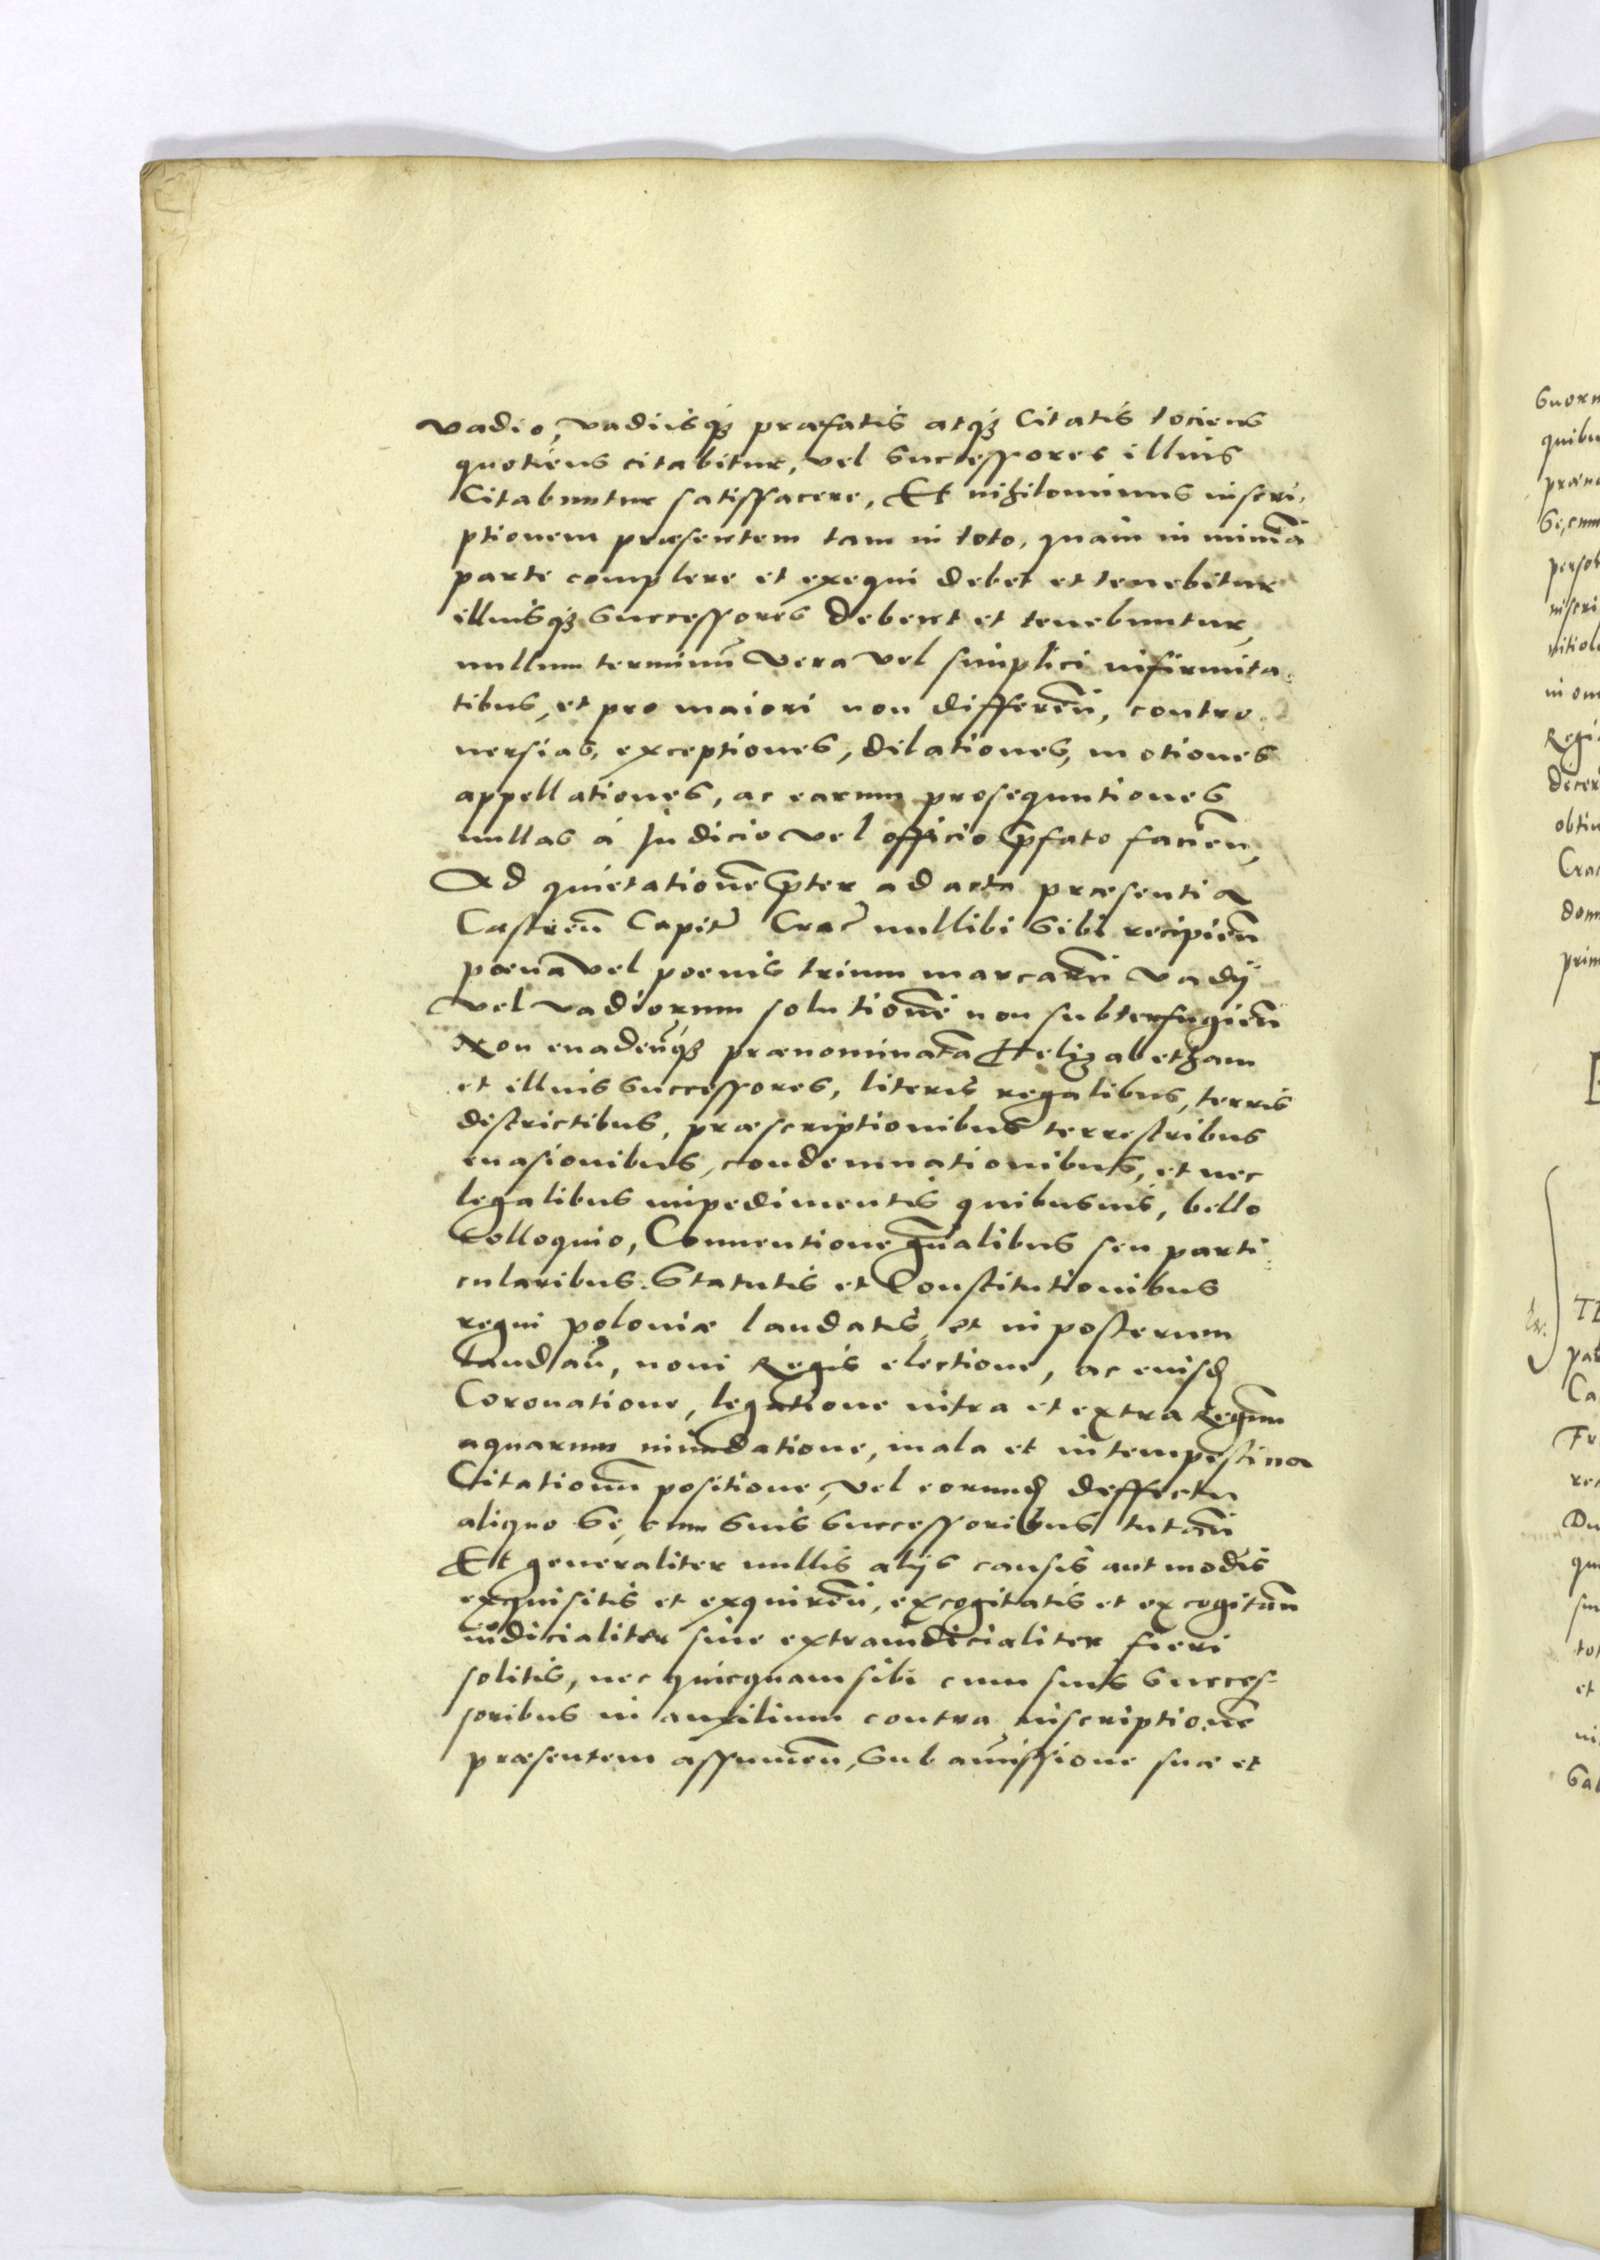 vadio, vadiisq₃ præfatis atq₃ Citatis tociens
quotiens citabitur, vel successores illius
Citabuntur satisfacere, Et nihilominus inscri-
ptionem præsentem tam in toto, quàm in minīā
parte complere et exequi debet et tenebitur
illiusq₃ successores debent et tenebuntur,
nullum terminū vera vel simplici infirmita-
tibus, et pro maiori non differen̄, contro
uersias, exceptiones, dilationes, motiones
appellationes, ac earum prosequutiones
nullas à Judicio vel officio p̄fato facien̄,
Ad quietationē p̄ter ad acta præsentia
Castren̄ Capitˀ Cracˀ nullibi sibi recipien̄
pœna vel poenis trium marcarū vadÿ
vel vadiorum solutionē non subterfugien̄
Non euaden̄q₃ prænominatā Helizabetham
et illius successores, literis regalibus, terris
districtibus, præscriptionibus terrestribus
euasionibus, condemnationibus, et nec
legalibus impedimentis quibusuis, bello
Colloquio, Conuentione gn̄alibus seu parti-
cularibus. Statutis et Constitutionibus
regni poloniæ laudatis, et in posterum
laudan̄, noui Regis electione, ac eiusd
Coronatione, legatione intra et extra Regnum
aquarum inundatione, mala et intempestiua
Citationū positione, vel eorund deffectu
aliquo se, cum suis successoribus tutan̄
Et generaliter nullis alÿs causis aut modis
exquisitis et exquiren̄, excogitatis et excogitan̄
iudicialiter siue extraiudicialiter fieri
solitis, nec quicquam sibi cum suis succes-
soribus in auxilium contra inscriptionē
præsentem assumen̄, sub amissione suæ et